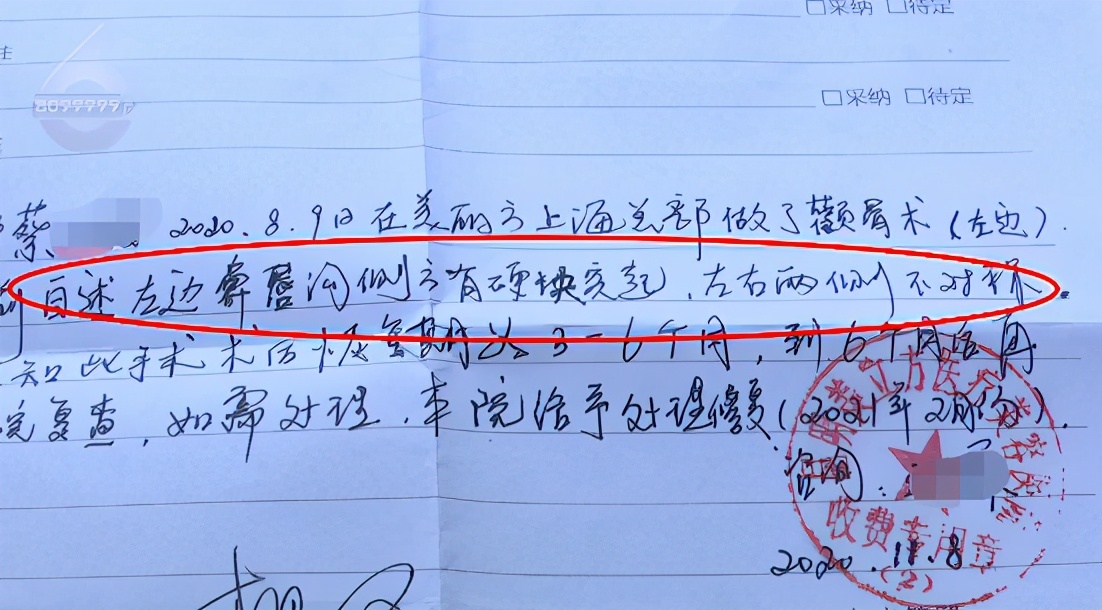 □采纳 □待定
□采纳 □待定
蔡 2020.8.9日在美丽方上海总部做了颧骨术(左边).
自述左边鼻唇沟侧方有硬块突起,左右两侧不对称.
知此手术术后恢复期为3-6个月,到6个月后再
院复查,如需处理,本院给予处理修复(2021年2月份).
咨询:
收费专用章
(2)
2020.11.8